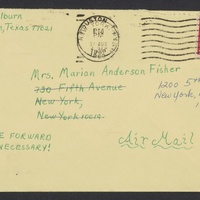 lburn
Texas 77021
HOUSTON, TEXAS
Mrs. Marian Anderson Fisher
730 Fifth Avenue
New York,
New York 10019
1200 5th
New York,
E FORWARD
NECESSARY!
Air Mail